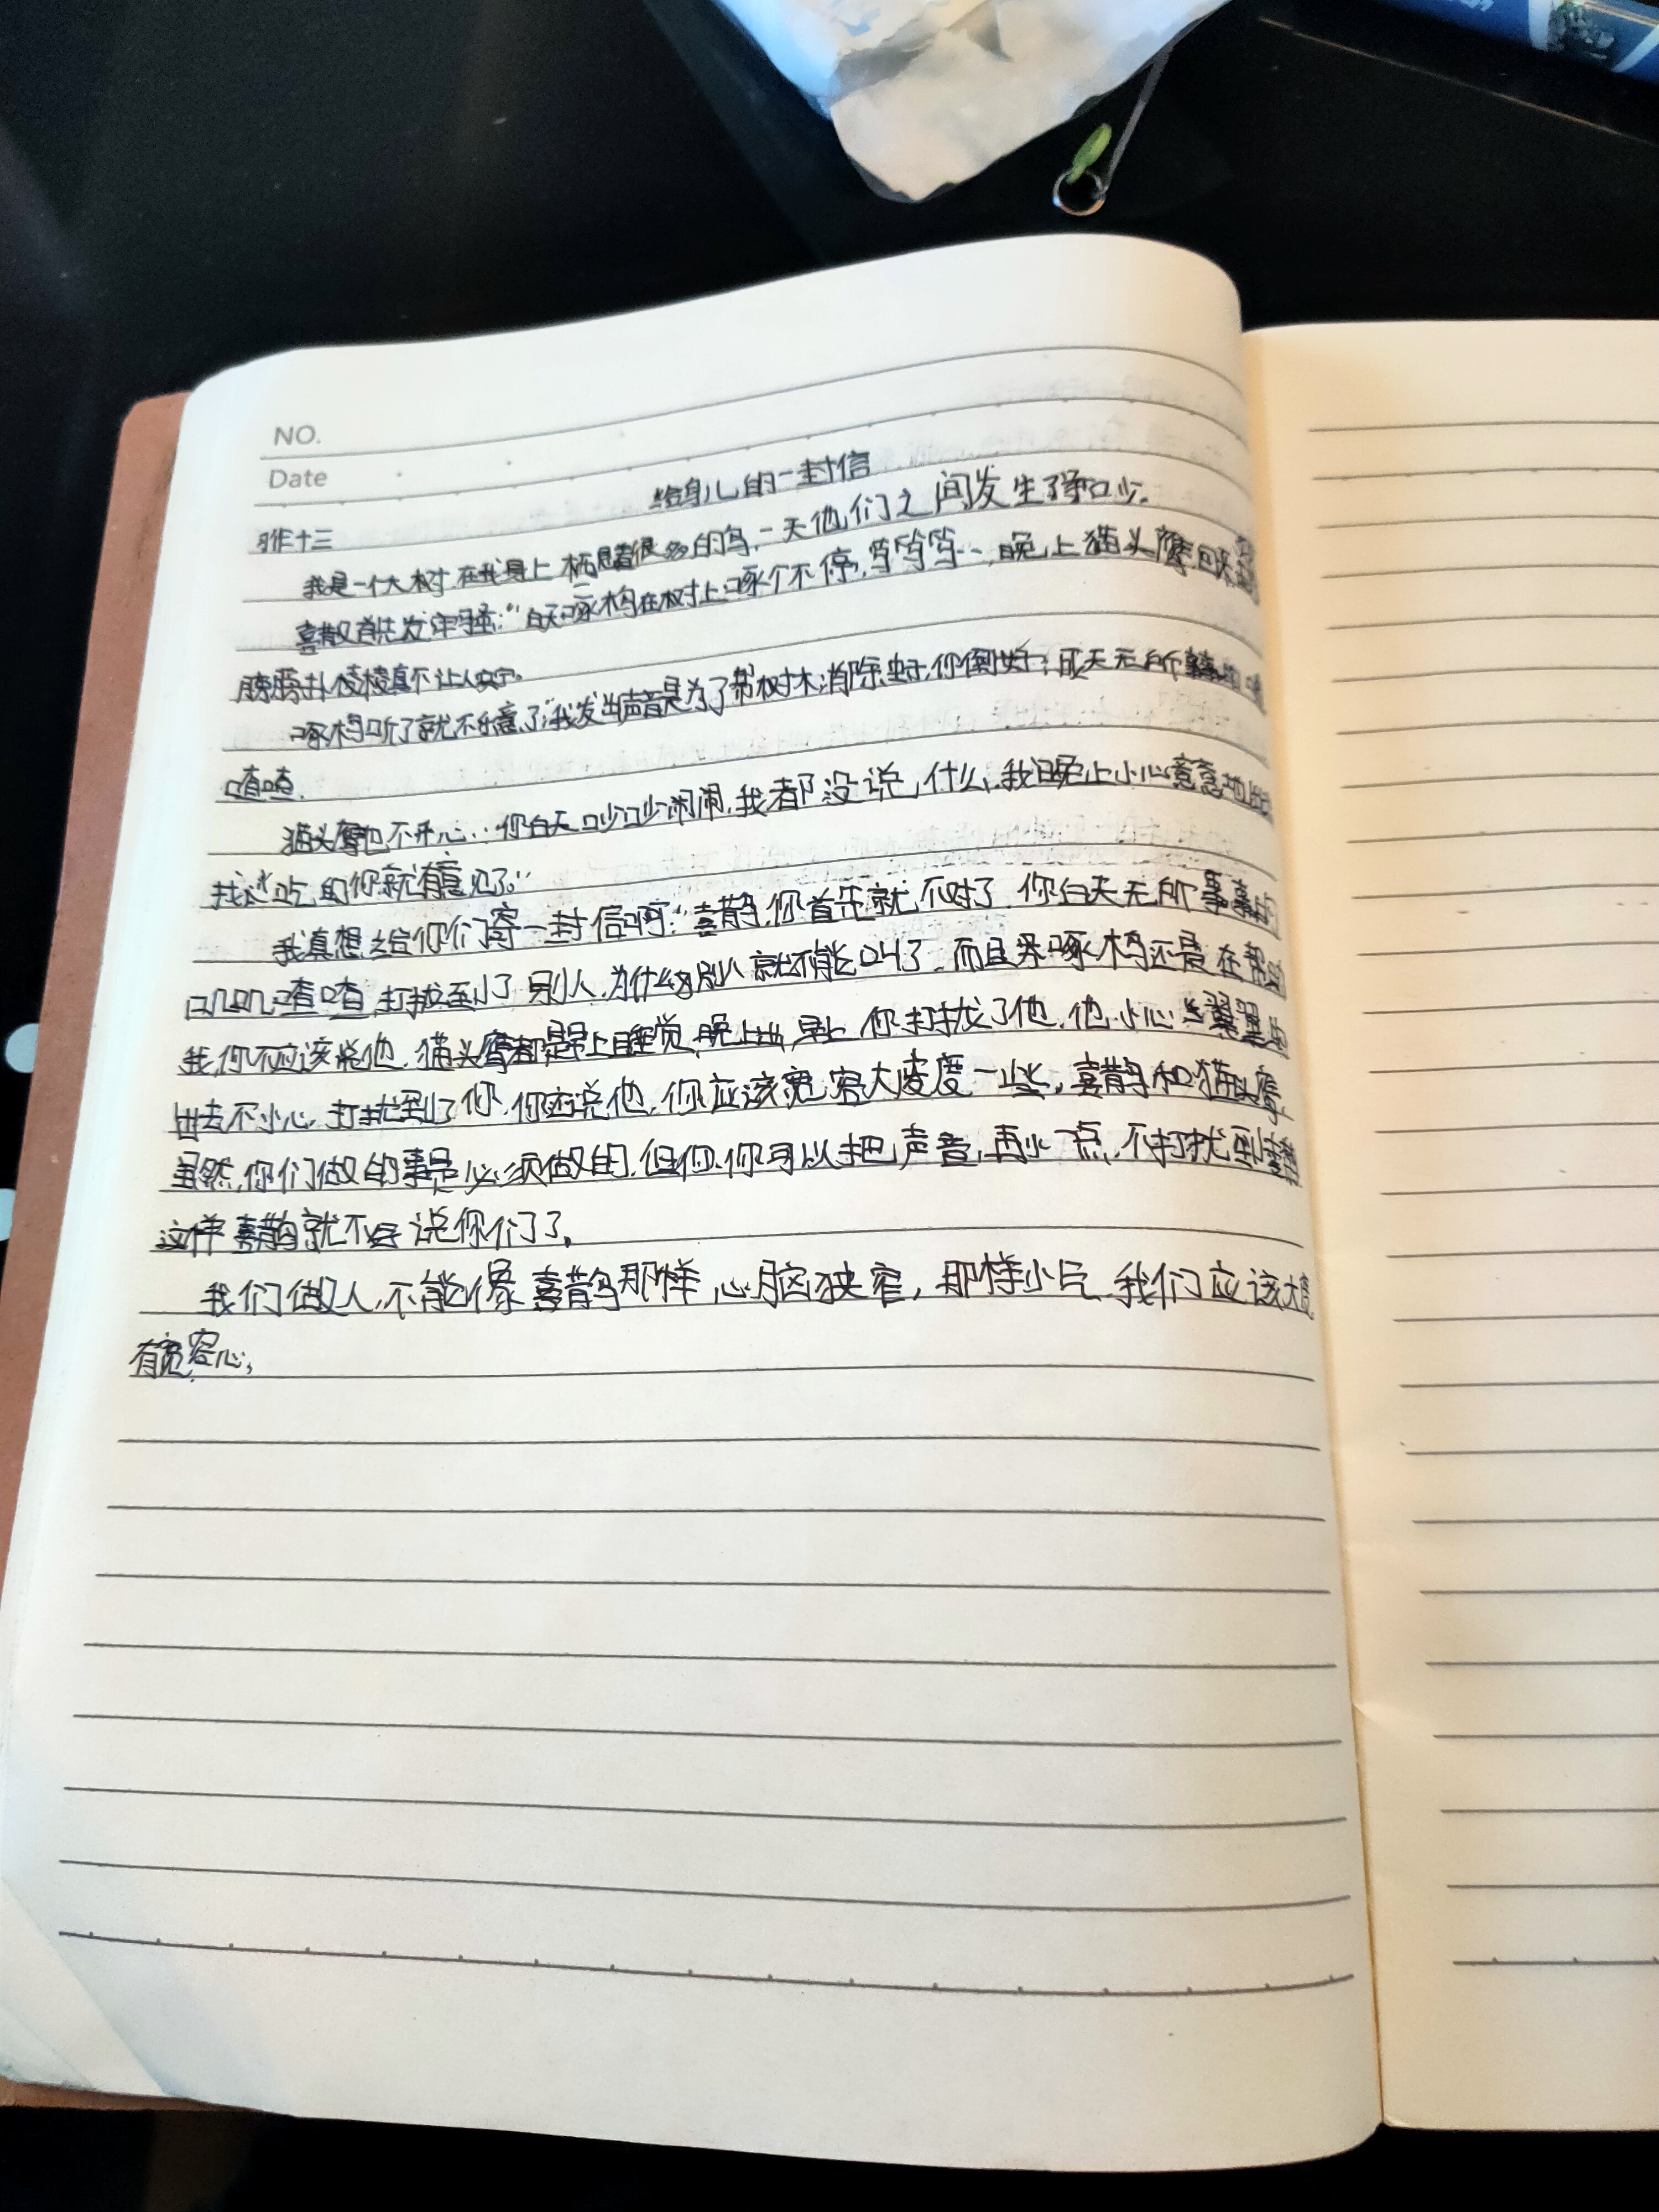 NO.
Date
给鸟儿的一封信
习作十三
我是一个大树.在我身上栖息着很多的鸟,一天他们之间发生了争吵.
喜鹊首先发牢骚:"白天啄木鸟在树上啄个不停,笃笃笃…,晚上猫头鹰
腾腾扑棱棱真不让人安宁。
啄木鸟听了就不乐意了"我发出声音是为了帮树木消除虫子,你倒好;成天无所
喳喳.
猫头鹰也不开心:.你白天吵吵闹闹,我都没说,什么,我晚上小心意意地出去
找点吃的你就有意见了。"
我真想给你们寄一封信啊:"喜鹊,你首先就不对了 你白天无所事事的
叽叽喳喳 打扰到了别人.为什么别人就不能叫了.而且 啄木鸟还是在帮助
我,你不应该说他.猫头鹰都是早上睡觉,晚上出,早上你打扰了他,他小心翼翼的
出去不小心.打扰到了你,你还说他.你应该宽容大度一些,喜鹊和猫头鹰,
虽然,你们做的事是必须做的,但你可以把声音再小一点,不打扰到
这样喜鹊就不会说你们了。
我们做人,不能像喜鹊那样心脑狭窄,那样小气.我们应该大度
有宽容心,